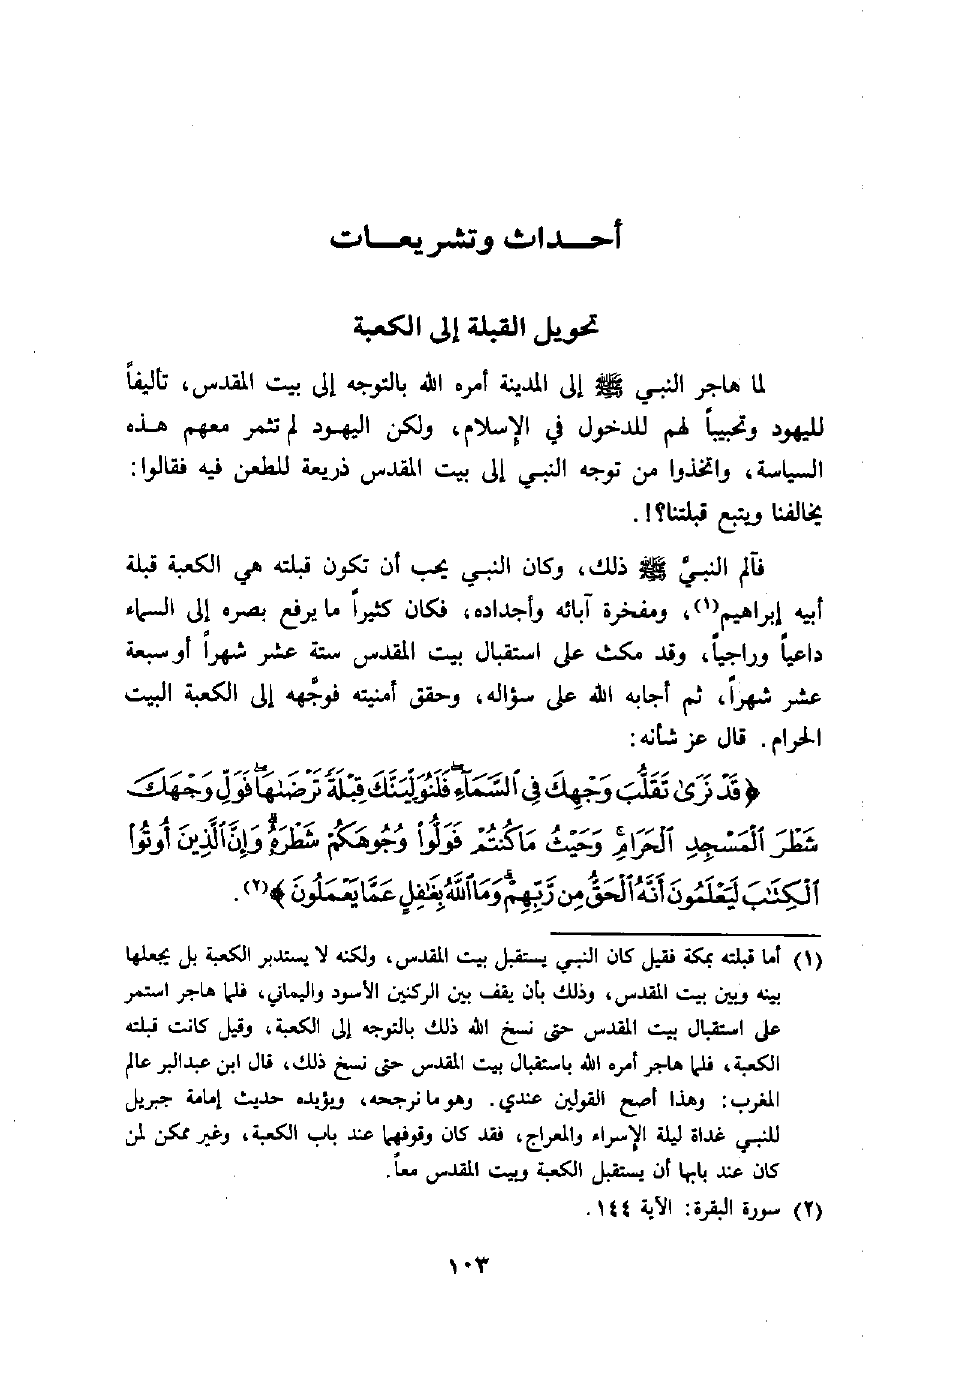 أحـــداث وتشريعـــات
تحويل القبلة إلى الكعبة
لما هاجر النبي ﷺ إلى المدينة أمره الله بالتوجه إلى بيت المقدس، تأليفاً
لليهود وتحبيباً لهم للدخول في الإسلام، ولكن اليهود لم تثمر معهم هذه
السياسة، واتخذوا من توجه النبي إلى بيت المقدس ذريعة للطعن فيه فقالوا:
يخالفنا ويتبع قبلتنا؟!.
فآلم النبيَّ ﷺ ذلك، وكان النبي يحب أن تكون قبلته هي الكعبة قبلة
أبيه إبراهيم(١)، ومفخرة آبائه وأجداده، فكان كثيراً ما يرفع بصره إلى السماء
داعياً وراجياً، وقد مكث على استقبال بيت المقدس ستة عشر شهراً أو سبعة
عشر شهراً، ثم أجابه الله على سؤاله، وحقق أمنيته فوجَّهه إلى الكعبة البيت
الحرام. قال عز شأنه:
﴿قَدْ نَرَىٰ تَقَلُّبَ وَجْهِكَ فِي ٱلسَّمَآءِۖ فَلَنُوَلِّيَنَّكَ قِبْلَةً تَرْضَىٰهَاۚ فَوَلِّ وَجْهَكَ
شَطْرَ ٱلْمَسْجِدِ ٱلْحَرَامِۚ وَحَيْثُ مَا كُنتُمْ فَوَلُّوا۟ وُجُوهَكُمْ شَطْرَهُۥۗ وَإِنَّ ٱلَّذِينَ أُوتُوا۟
ٱلْكِتَٰبَ لَيَعْلَمُونَ أَنَّهُ ٱلْحَقُّ مِن رَّبِّهِمْۗ وَمَا ٱللَّهُ بِغَٰفِلٍ عَمَّا يَعْمَلُونَ﴾(٢).
(١) أما قبلته بمكة فقيل كان النبي يستقبل بيت المقدس، ولكنه لا يستدبر الكعبة بل يجعلها
بينه وبين بيت المقدس، وذلك بأن يقف بين الركنين الأسود واليماني، فلما هاجر استمر
على استقبال بيت المقدس حتى نسخ الله ذلك بالتوجه إلى الكعبة، وقيل كانت قبلته
الكعبة، فلما هاجر أمره الله باستقبال بيت المقدس حتى نسخ ذلك، قال ابن عبدالبر عالم
المغرب: وهذا أصح القولين عندي. وهو ما نرجحه، ويؤيده حديث إمامة جبريل
للنبي غداة ليلة الإسراء والمعراج، فقد كان وقوفهما عند باب الكعبة، وغير ممكن لمن
كان عند بابها أن يستقبل الكعبة وبيت المقدس معاً.
(٢) سورة البقرة: الآية ١٤٤.
١٠٣